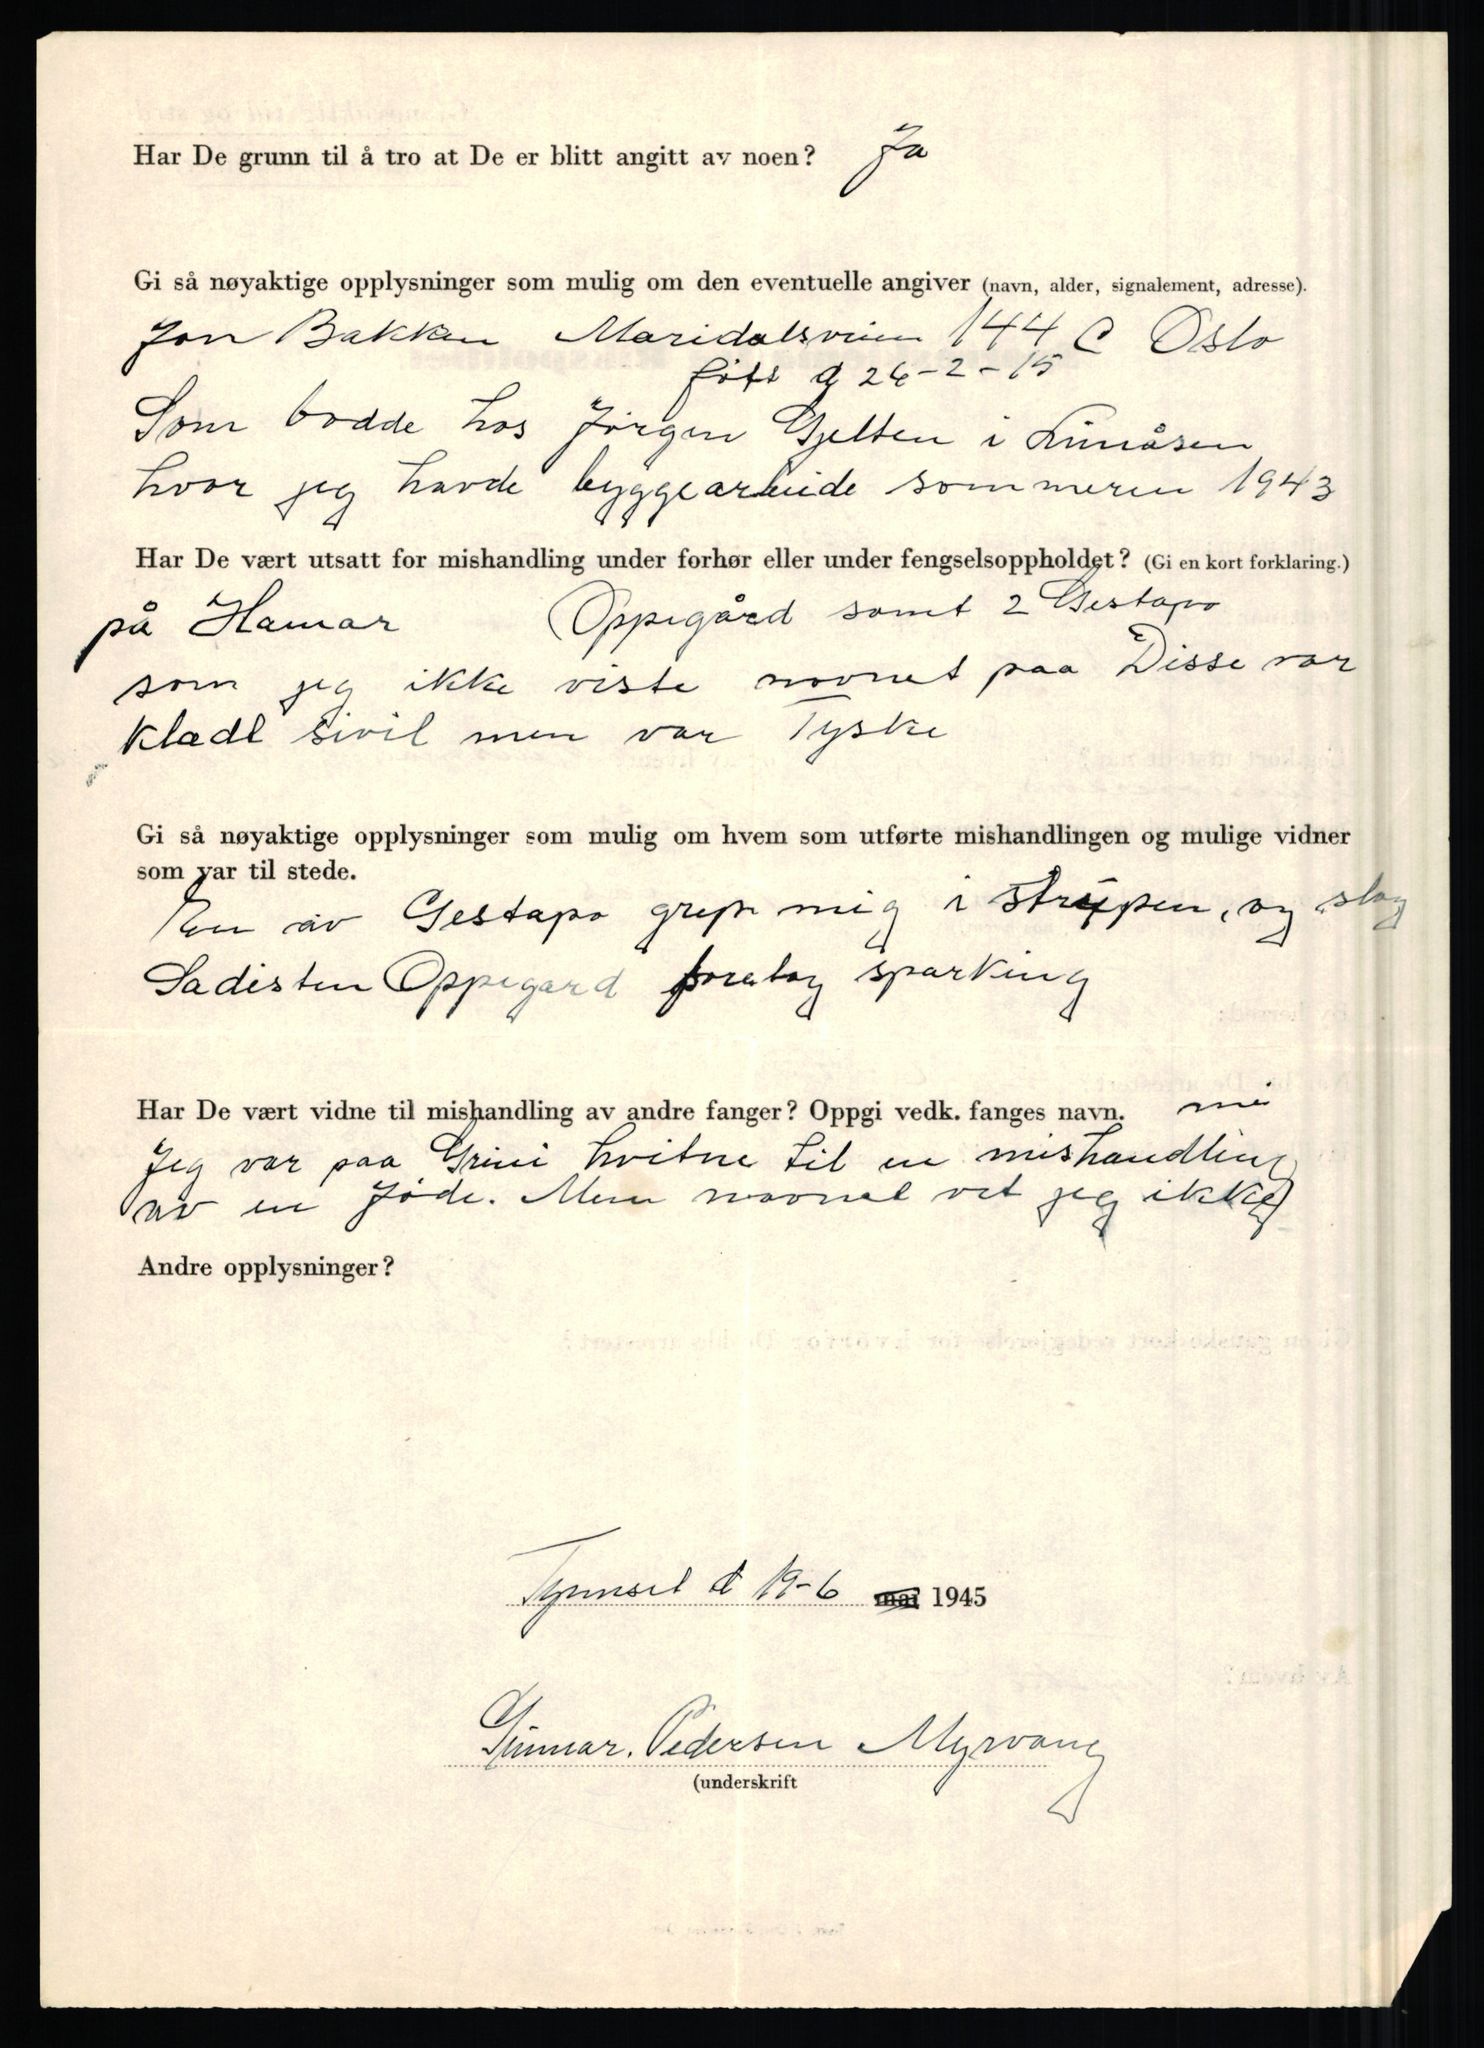 Har De grunn til å tro at De er blitt angitt av noen? Ja
Gi så nøyaktige opplysninger som mulig om den eventuelle angiver (navn, alder, signalement, adresse).
Jon Bakken Maridalsveien 144 C Oslo
født d 26-2-15
Som bodde hos Jørgen Gjelten i
hvor jeg havde byggearbeide sommeren 1943
Har De vært utsatt for mishandling under forhør eller under fengselsoppholdet? (Gi en kort forklaring.)
på Hamar Oppegård samt 2 Gestapo
som jeg ikke viste navnet paa Disse var
kladt sivil men var Tyske
Gi så nøyaktige opplysninger som mulig om hvem som utførte mishandlingen og mulige vidner
som var til stede.
En av Gestapo grep mig i strypen, og slog
Sadisten Oppegard foretog sparking
Har De vært vidne til mishandling av andre fanger? Oppgi vedk. fanges navn.
Jeg var paa Grini hvitne til en mishandling
av en Jøde. Men navnet vet jeg ikke
Andre opplysninger?
Tynnset d 19-6 mai 1945
Gunnar. Pedersen Myrvang
(underskrift